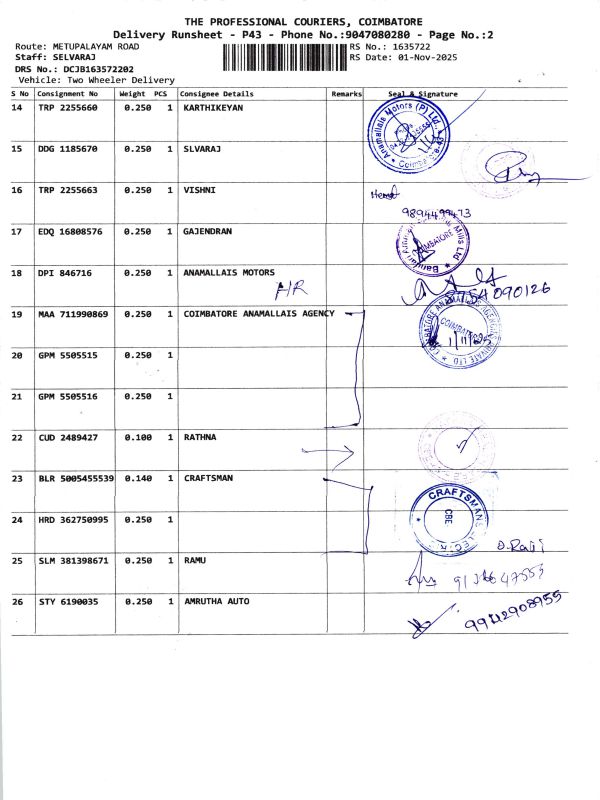 THE PROFESSIONAL COURIERS, COIMBATORE
Delivery Runsheet - P43 - Phone No.:9047080280 - Page No.:2
Route: METUPALAYAM ROAD RS No.: 1635722
Staff: SELVARAJ RS Date: 01-Nov-2025
DRS No.: DCJB163572202
Vehicle: Two Wheeler Delivery
S No Consignment No Weight PCS Consignee Details Remarks Seal & Signature
14 TRP 2255660 0.250 1 KARTHIKEYAN
Anamallais Motors (P) Ltd.
15 DDG 1185670 0.250 1 SLVARAJ
16 TRP 2255663 0.250 1 VISHNI
17 EDQ 16808576 0.250 1 GAJENDRAN
COIMBATORE
18 DPI 846716 0.250 1 ANAMALLAIS MOTORS
19 MAA 711990869 0.250 1 COIMBATORE ANAMALLAIS AGENCY
20 GPM 5505515 0.250 1
21 GPM 5505516 0.250 1
22 CUD 2489427 0.100 1 RATHNA
23 BLR 5005455539 0.140 1 CRAFTSMAN
CRAFTSMAN
CBE
24 HRD 362750995 0.250 1
25 SLM 381398671 0.250 1 RAMU
26 STY 6190035 0.250 1 AMRUTHA AUTO